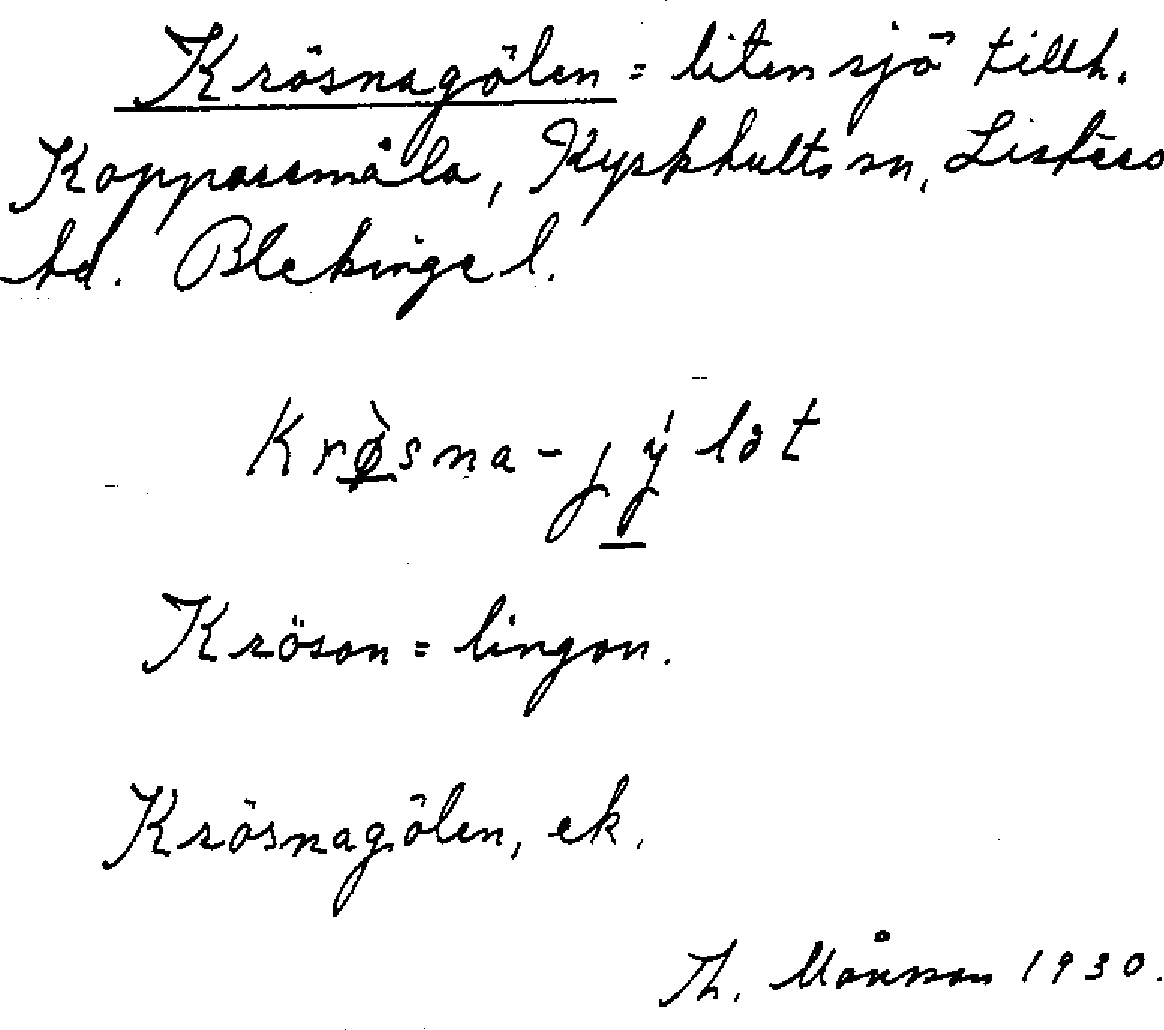 Krösnagölen = liten sjö tillh.
Kopparemåla, Kyrkhults sn, Listers
hd. Blekinge l.
Krø̀sna-jýlət
Kröson = lingon.
Krösnagölen, ek.
Th. Månsson 1930.